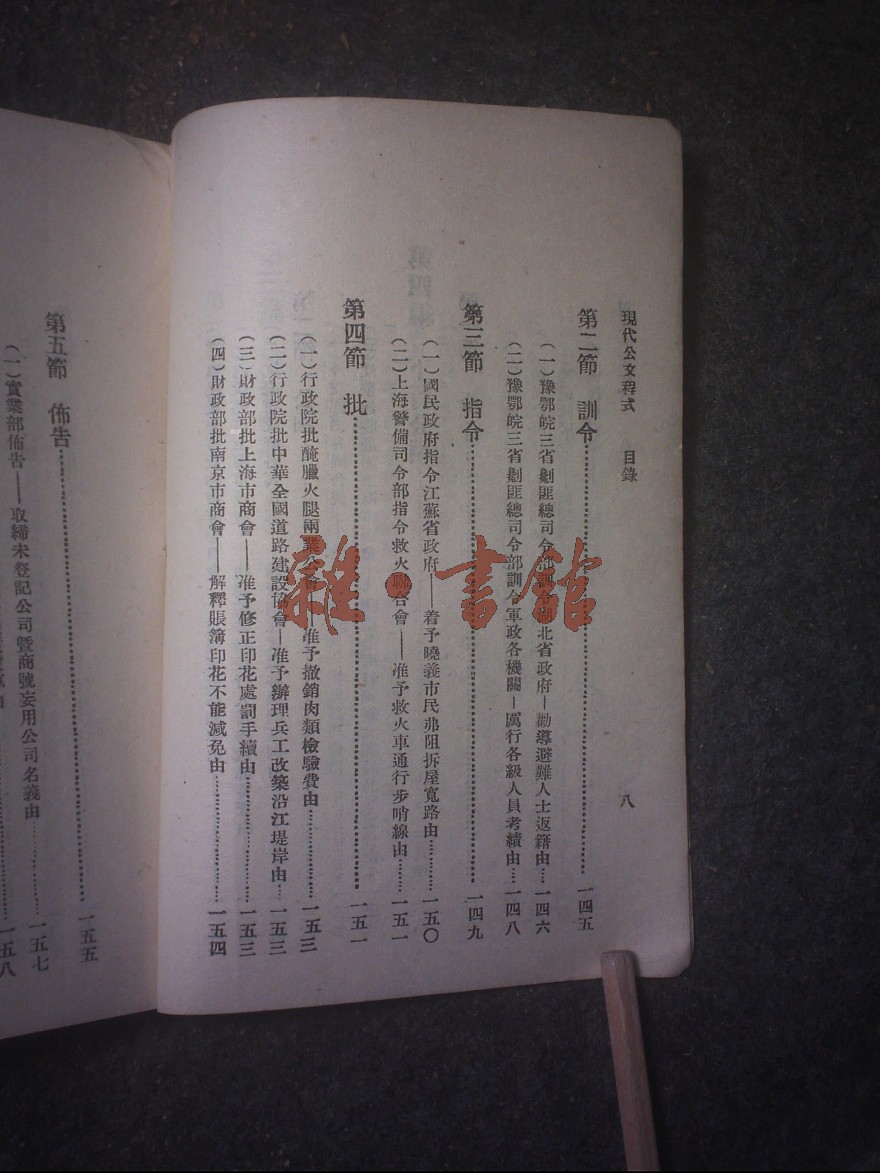 現代公文程式　目錄　八
第二節　訓令……一四五
（一）豫鄂皖三省剿匪總司令部訓令湖北省政府—勸導避難人士返籍由…一四六
（二）豫鄂皖三省剿匪總司令部訓令軍政各機關—厲行各級人員考績由…一四八
第三節　指令……一四九
（一）國民政府指令江蘇省政府——着予曉義市民弗阻拆屋寬路由……一五〇
（二）上海警備司令部指令救火聯合會——准予救火車通行步哨線由……一五一
第四節　批……一五一
（一）行政院批醃臘火腿兩業公會——准予撤銷肉類檢驗費由……一五三
（二）行政院批中華全國道路建設協會—准予辦理兵工改築沿江堤岸由…一五三
（三）財政部批上海市商會——准予修正印花處罰手續由……一五三
（四）財政部批南京市商會——解釋賬簿印花不能減免由……一五四
第五節　佈告……一五五
（一）實業部佈告——取締未登記公司暨商號妄用公司名義由……一五七
一五八
雜·書館